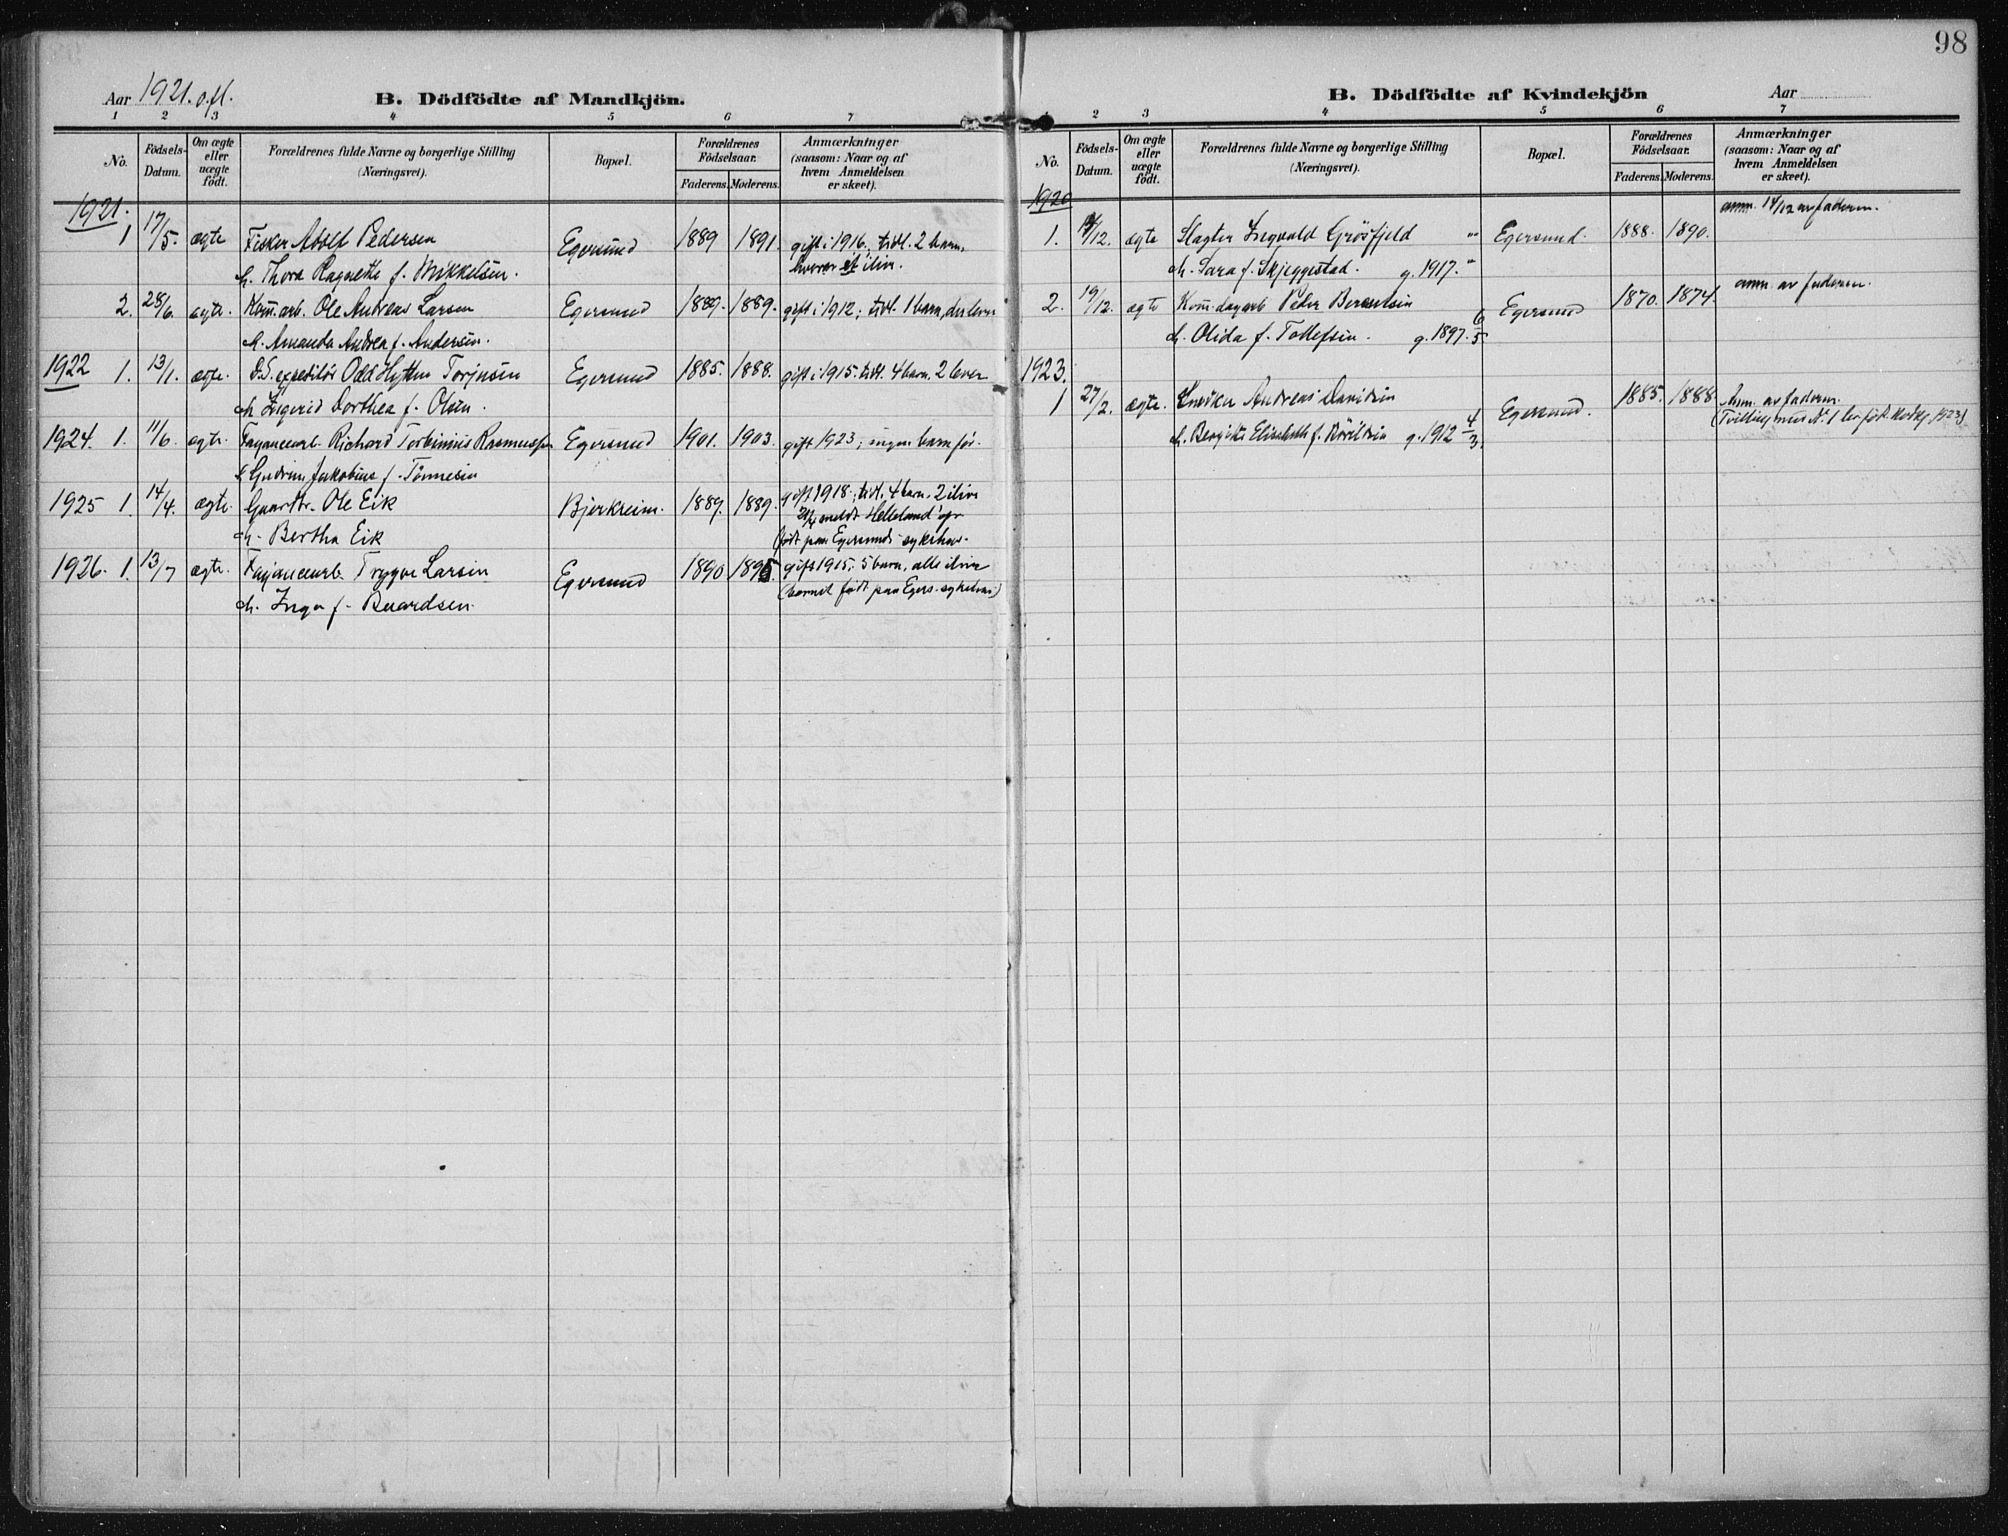 98
Aar 1921 o.fl.
B. Dödfödte af Mandkjön.
1 2 3 4 5 6 7
No.
Födsels-Datum.
Om ægte eller uægte födt.
Forældrenes fulde Navne og borgerlige Stilling (Næringsvei).
Bopæl.
Forældrenes Födselsaar.
Faderens. Moderens.
Anmærkninger (saasom: Naar og af hvem Anmeldelsen er skeet).
1921.
1 17/5. ægte Fisker Adolf Pedersen Egersund 1889 1891. gift i 1916. tidl. 2 barn,
h. Thora Ragnette f. Mikkelsen. hvorav et ilive.
2. 28/6. ægte. Kom.arb. Ole Andreas Larsen Egersund 1889. 1889. gift i 1912; tidl. 1 barn, der lever
h. Amanda Andrea f. Andersen.
1922 1. 13/1. ægte. D.S. expeditör Odd Torjusen Egersund 1885. 1888. gift i 1915. tidl. 4 barn. 2 lever
h. Ingerid Dorthea f. Olsen.
1924. 1. 11/6. ægte. Fayancearb. Richard Torbinius Rasmussen Egersund 1901. 1903. gift 1923; ingen barn för.
h. Gudrun f. Tönnesen
1925 1. 14/4. ægte. Gaardbr. Ole Eik Bjerkreim. 1889. 1889. gift 1918; tidl. 4 barn. 2 ilive
h. Bertha Eik meldt Helleland
födt paa Egersunds sykehus.
1926. 1. 13/7 ægte. Fayancearb. Trygve Larsen Egersund 1890 1895. gift 1915. 5 barn, alle ilive
h. Inga f. Baardsen. (barnet födt paa Egers. sykehus)
B. Dödfödte af Kvindekjön
Aar
1 2 3 4 5 6 7
No.
Födsels-Datum.
Om ægte eller uægte födt.
Forældrenes fulde Navne og borgerlige Stilling (Næringsvei).
Bopæl.
Forældrenes Födselsaar.
Faderens. Moderens.
Anmærkninger (saasom: Naar og af hvem Anmeldelsen er skeet).
1920
anm. 14/12 av faderen.
1. /12. ægte Slagter Ingvald Grösfjeld Egersund. 1888. 1890.
h. Sara f. Skjeggestad. g. 1917.
anm. av faderen.
2. 19/12. ægte Kom. dagarb. Peder Berentsen Egersund 1870. 1874.
h. Olida f. Tollefsen. g. 1897 6/5
1923.
1 27/2. ægte. Snedker Andreas Davidsen Egersund. 1885. 1888 Anm. av faderen.
h. Bergitte Elisabeth f. g. 1912 4/3. (Tvilling med Nr. 1 lev. föd. 1923)